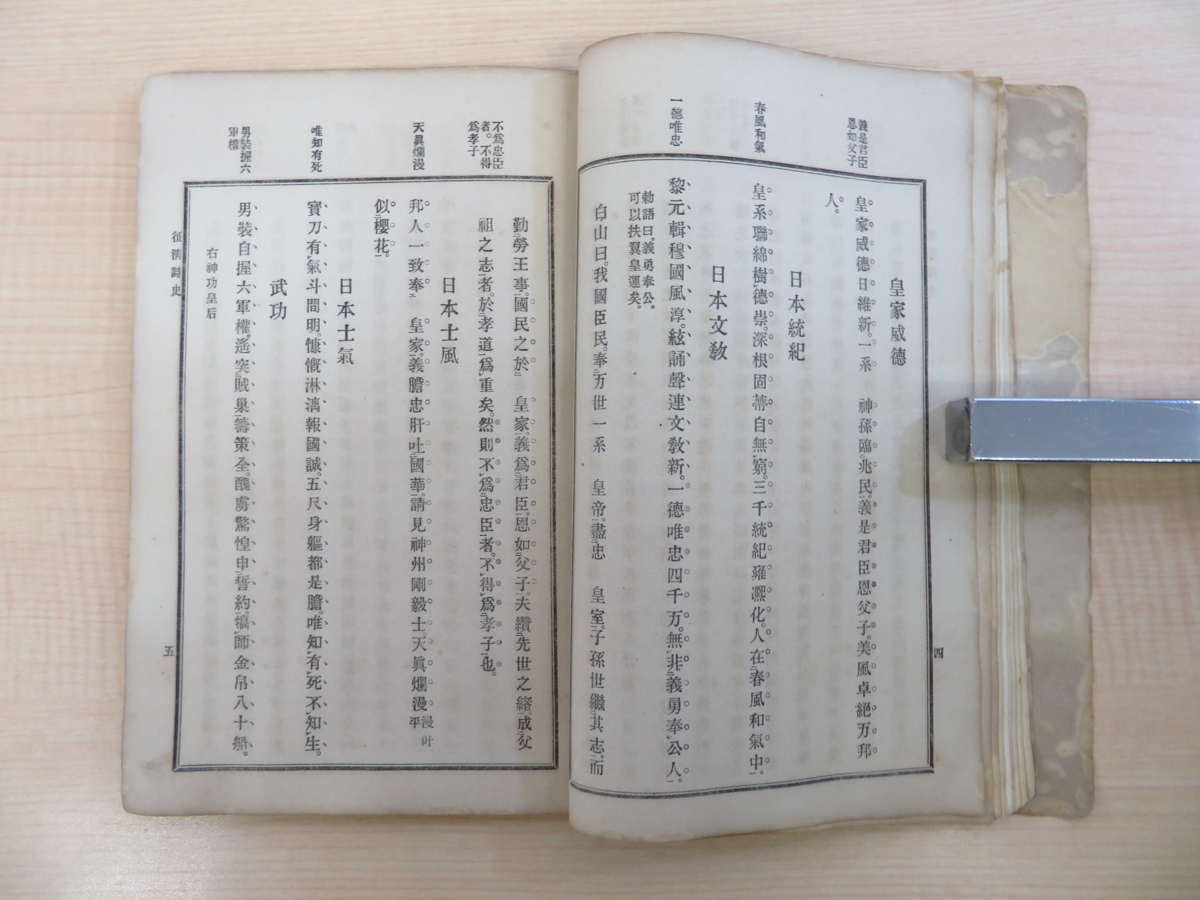 義是君臣
恩如父子
皇家威德
皇家威德日維新。一系 神孫臨兆民。義是君臣恩父子。美風卓絕万邦
人。
日本統紀
春風和氣
皇系聯綿樹德崇。深根固蔕自無窮。三千統紀雍凞化。人在春風和氣中。
日本文敎
一德唯忠
黎元輯穆國風淳。絃誦聲連文敎新。一德唯忠四千万。無非義勇奉公人。
勅語曰。義勇奉公。
可以扶翼皇運矣。
白山曰。我國臣民。奉万世一系 皇帝。盡忠 皇室。子孫世繼其志。而
四
勤勞王事。國民之於 皇家。義爲君臣。恩如父子。夫纘先世之緖。成父
不爲忠臣
者。不得
爲孝子
祖之志者。於孝道爲重矣。然則不爲忠臣者。不得爲孝子也。
日本士風
天眞爛漫
邦人一致奉 皇家。義膽忠肝吐國華。請見神州剛毅士。天眞爛漫
漫叶
平
似櫻花。
日本士氣
唯知有死
寶刀有氣斗間明。慷慨淋漓報國誠。五尺身軀都是膽。唯知有死不知生。
武功
男裝握六
軍權
男裝自握六軍權。遙突賊巢籌策全。醜虜驚惶申誓約。犒師金帛八十船。
右神功皇后
征淸詩史
五